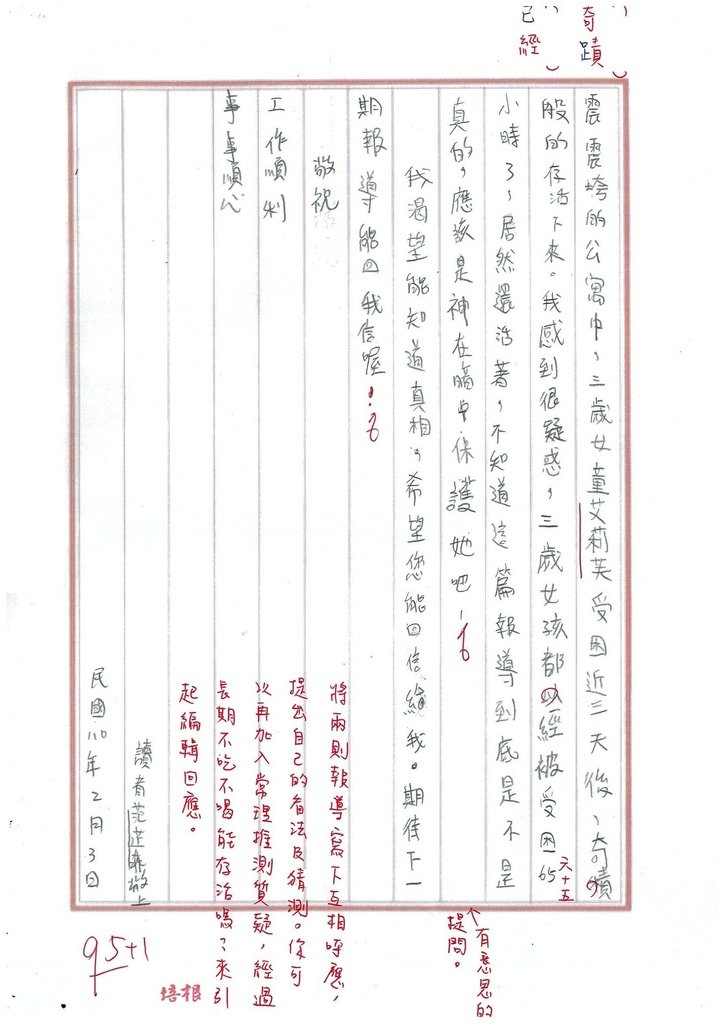 奇蹟
已經
震震垮的公寓中，三歲女童艾莉芙受困近三天後，奇績
般的存活下來。我感到很疑惑，三歲女孩都以經被受困65
六十五
小時了，居然還活著，不知道這篇報導到底是不是
真的，應該是神在暗中保護她吧！
有意思的
提問。
我渴望能知道真相，希望您能回信給我。期待下一
期報導能回我信喔！
敬祝
工作順利
事事順心
將兩則報導寫下互相呼應，
提出自己的看法及猜測。你可
以再加入常理推測質疑，經過
長期不吃不喝能存活嗎？來引
起編輯回應。
讀者范芷 敬上
民國110年2月3日
95+1
培根